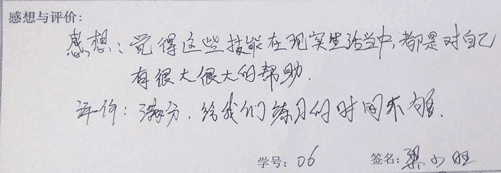 感想与评价:
感想:觉得这些技能在现实生活当中,都是对自己
有很大很大的帮助.
评价:满分.给我们练习的时间不够.
学号:06 签名:梁小旺